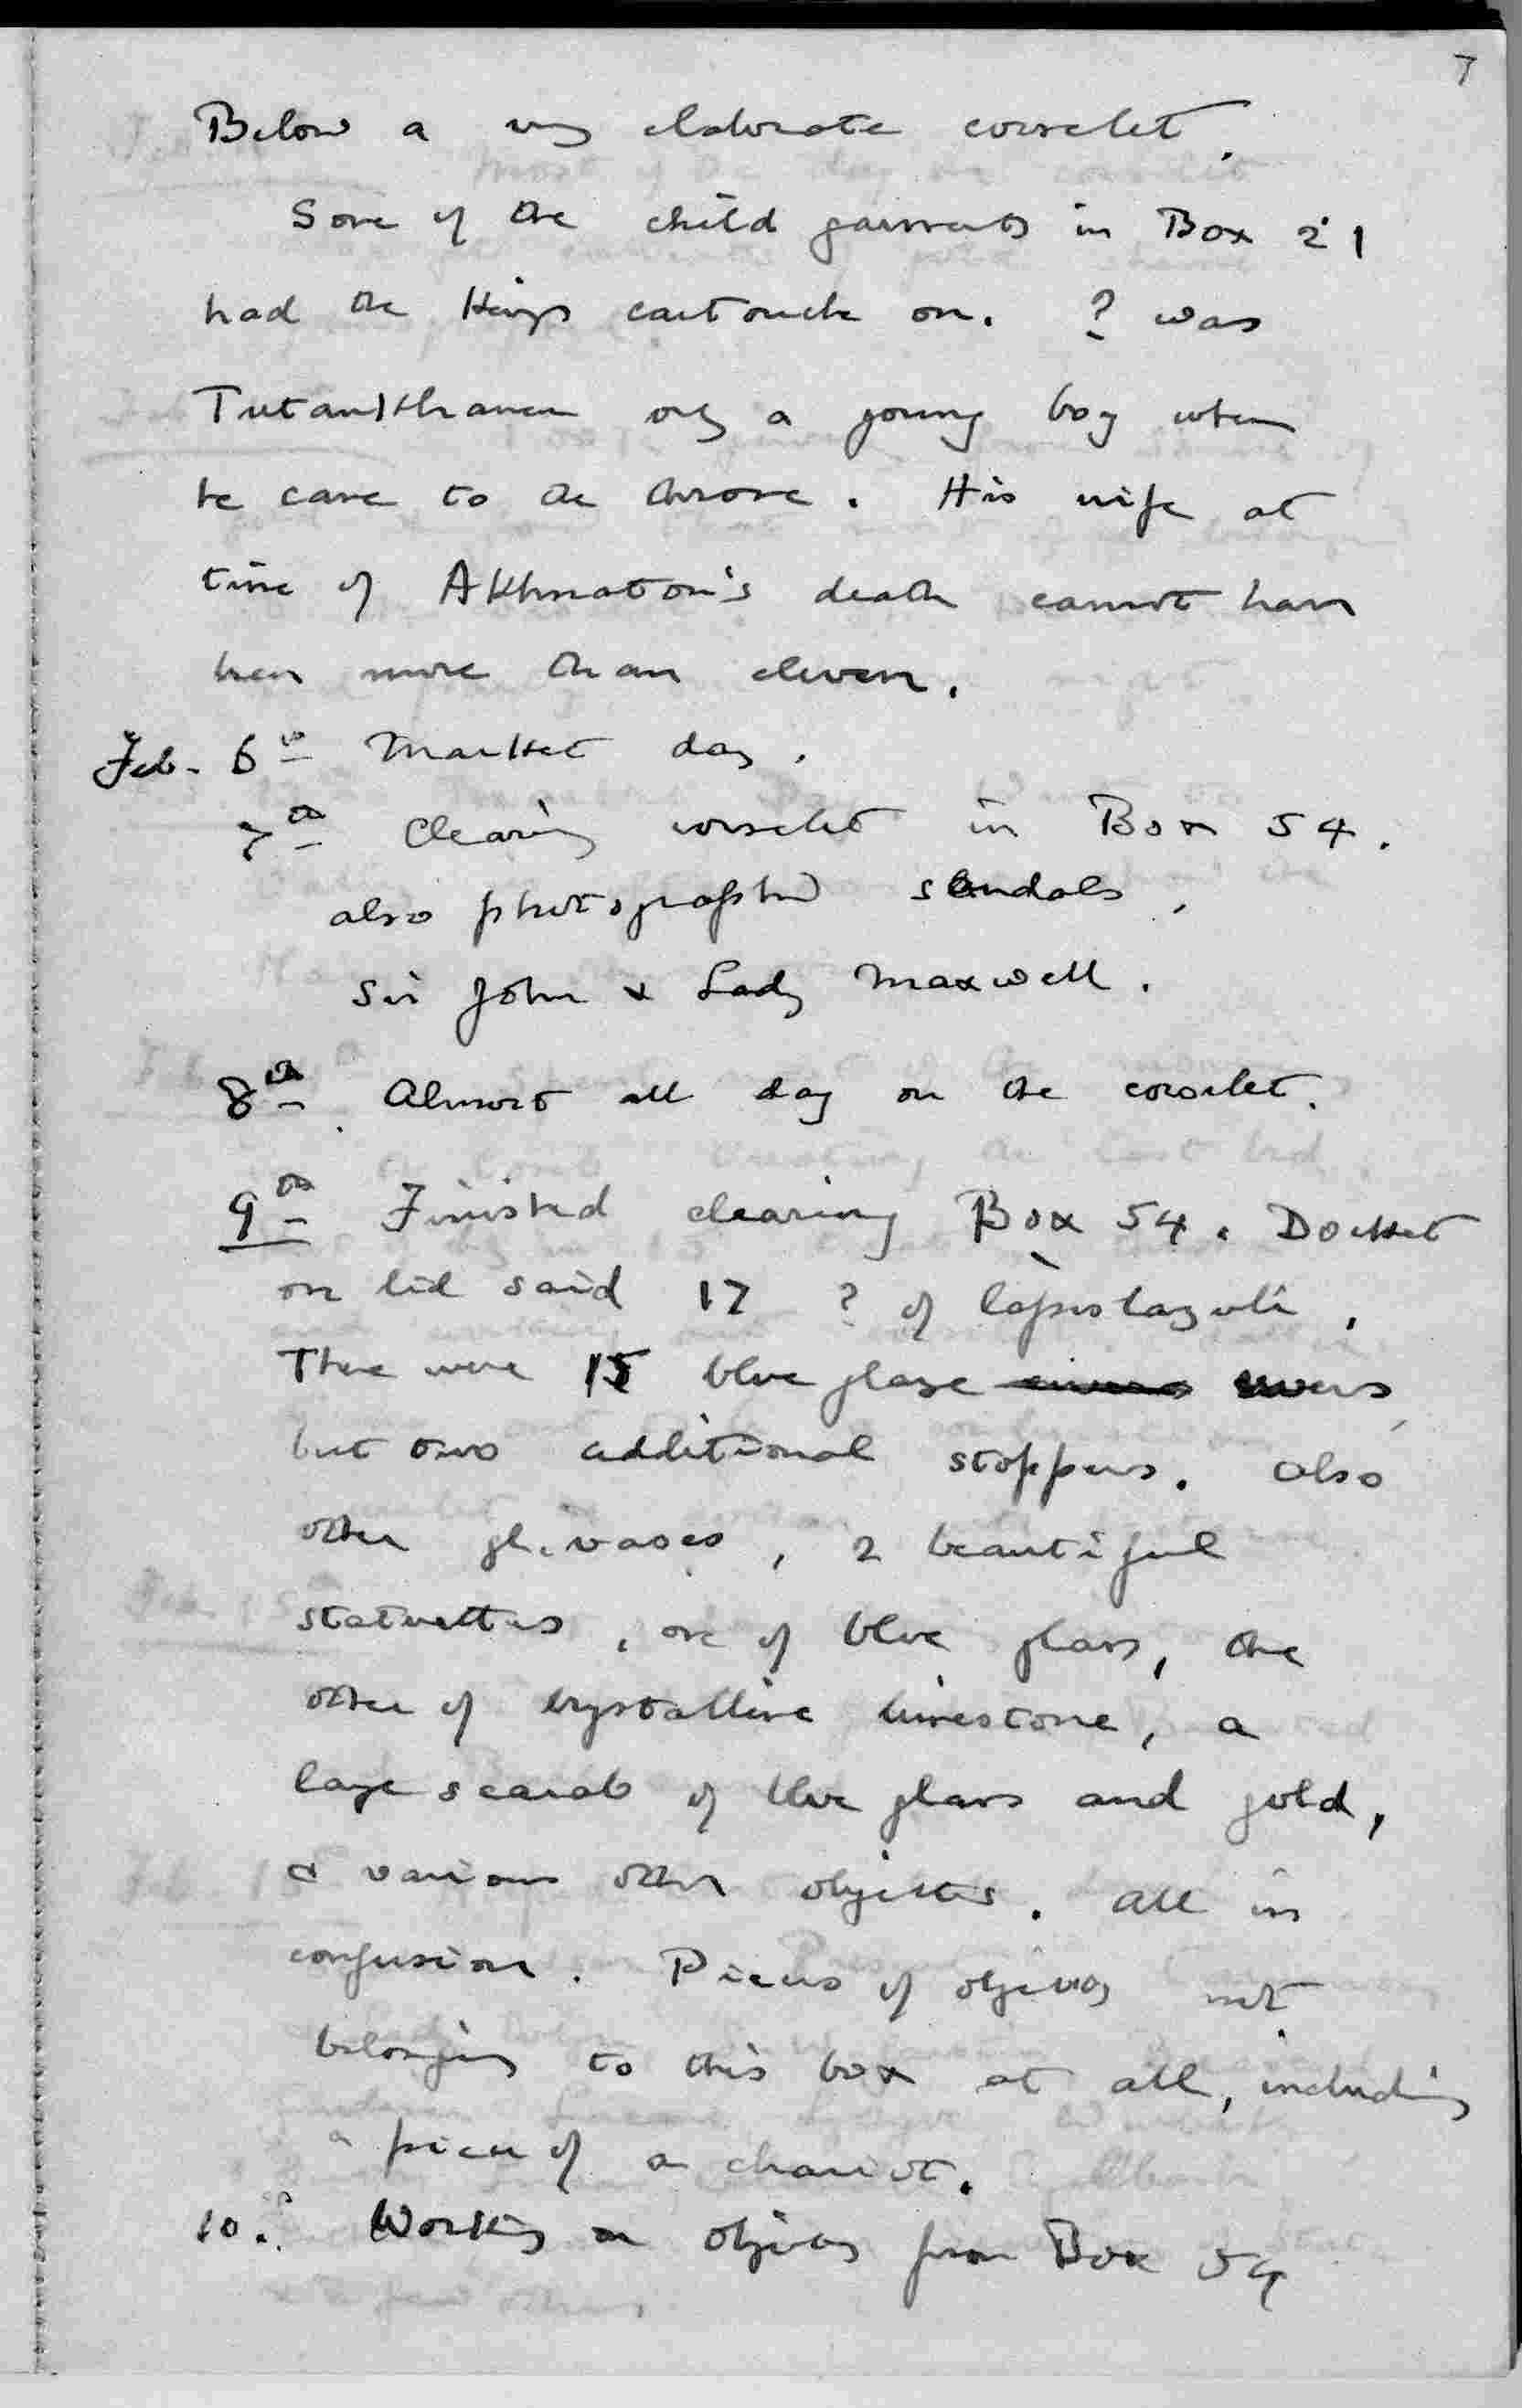 7
Below a very elaborate corselet.
Some of the child garments in Box 21
had the Kings cartouche on. ? was
Tutankhamen only a young boy when
he came to the throne. His wife at
time of Akhnaton's death cannot have
been more than eleven.
Feb. 6th Market day.
7th Clearing corselet in Box 54.
also photographed sandals,
Sir John & Lady Maxwell.
8th. Almost all day on the corselet.
9th Finished clearing Box 54. Docket
on lid said 17 ? of lapis lazuli.
There were 15 blue glaze ewers
but two additional stoppers. Also
other gl. vases, 2 beautiful
statuettes, one of blue glass, the
other of crystalline limestone, a
large scarab of blue glass and gold,
& various other objects. All in
confusion. Pieces of objects not
belonging to this box at all, including
a piece of a chariot.
10. Working on objects from Box 54